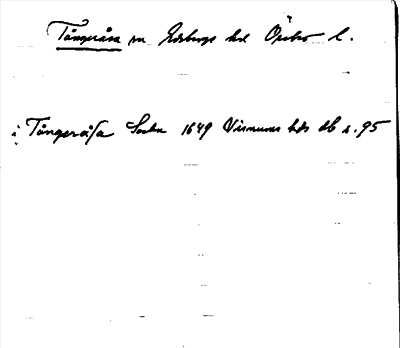 Tångeråsa sn Edsbergs hd Örebro l.
i Tångeråsa Sochn 1649 Visnums hds db s. 95